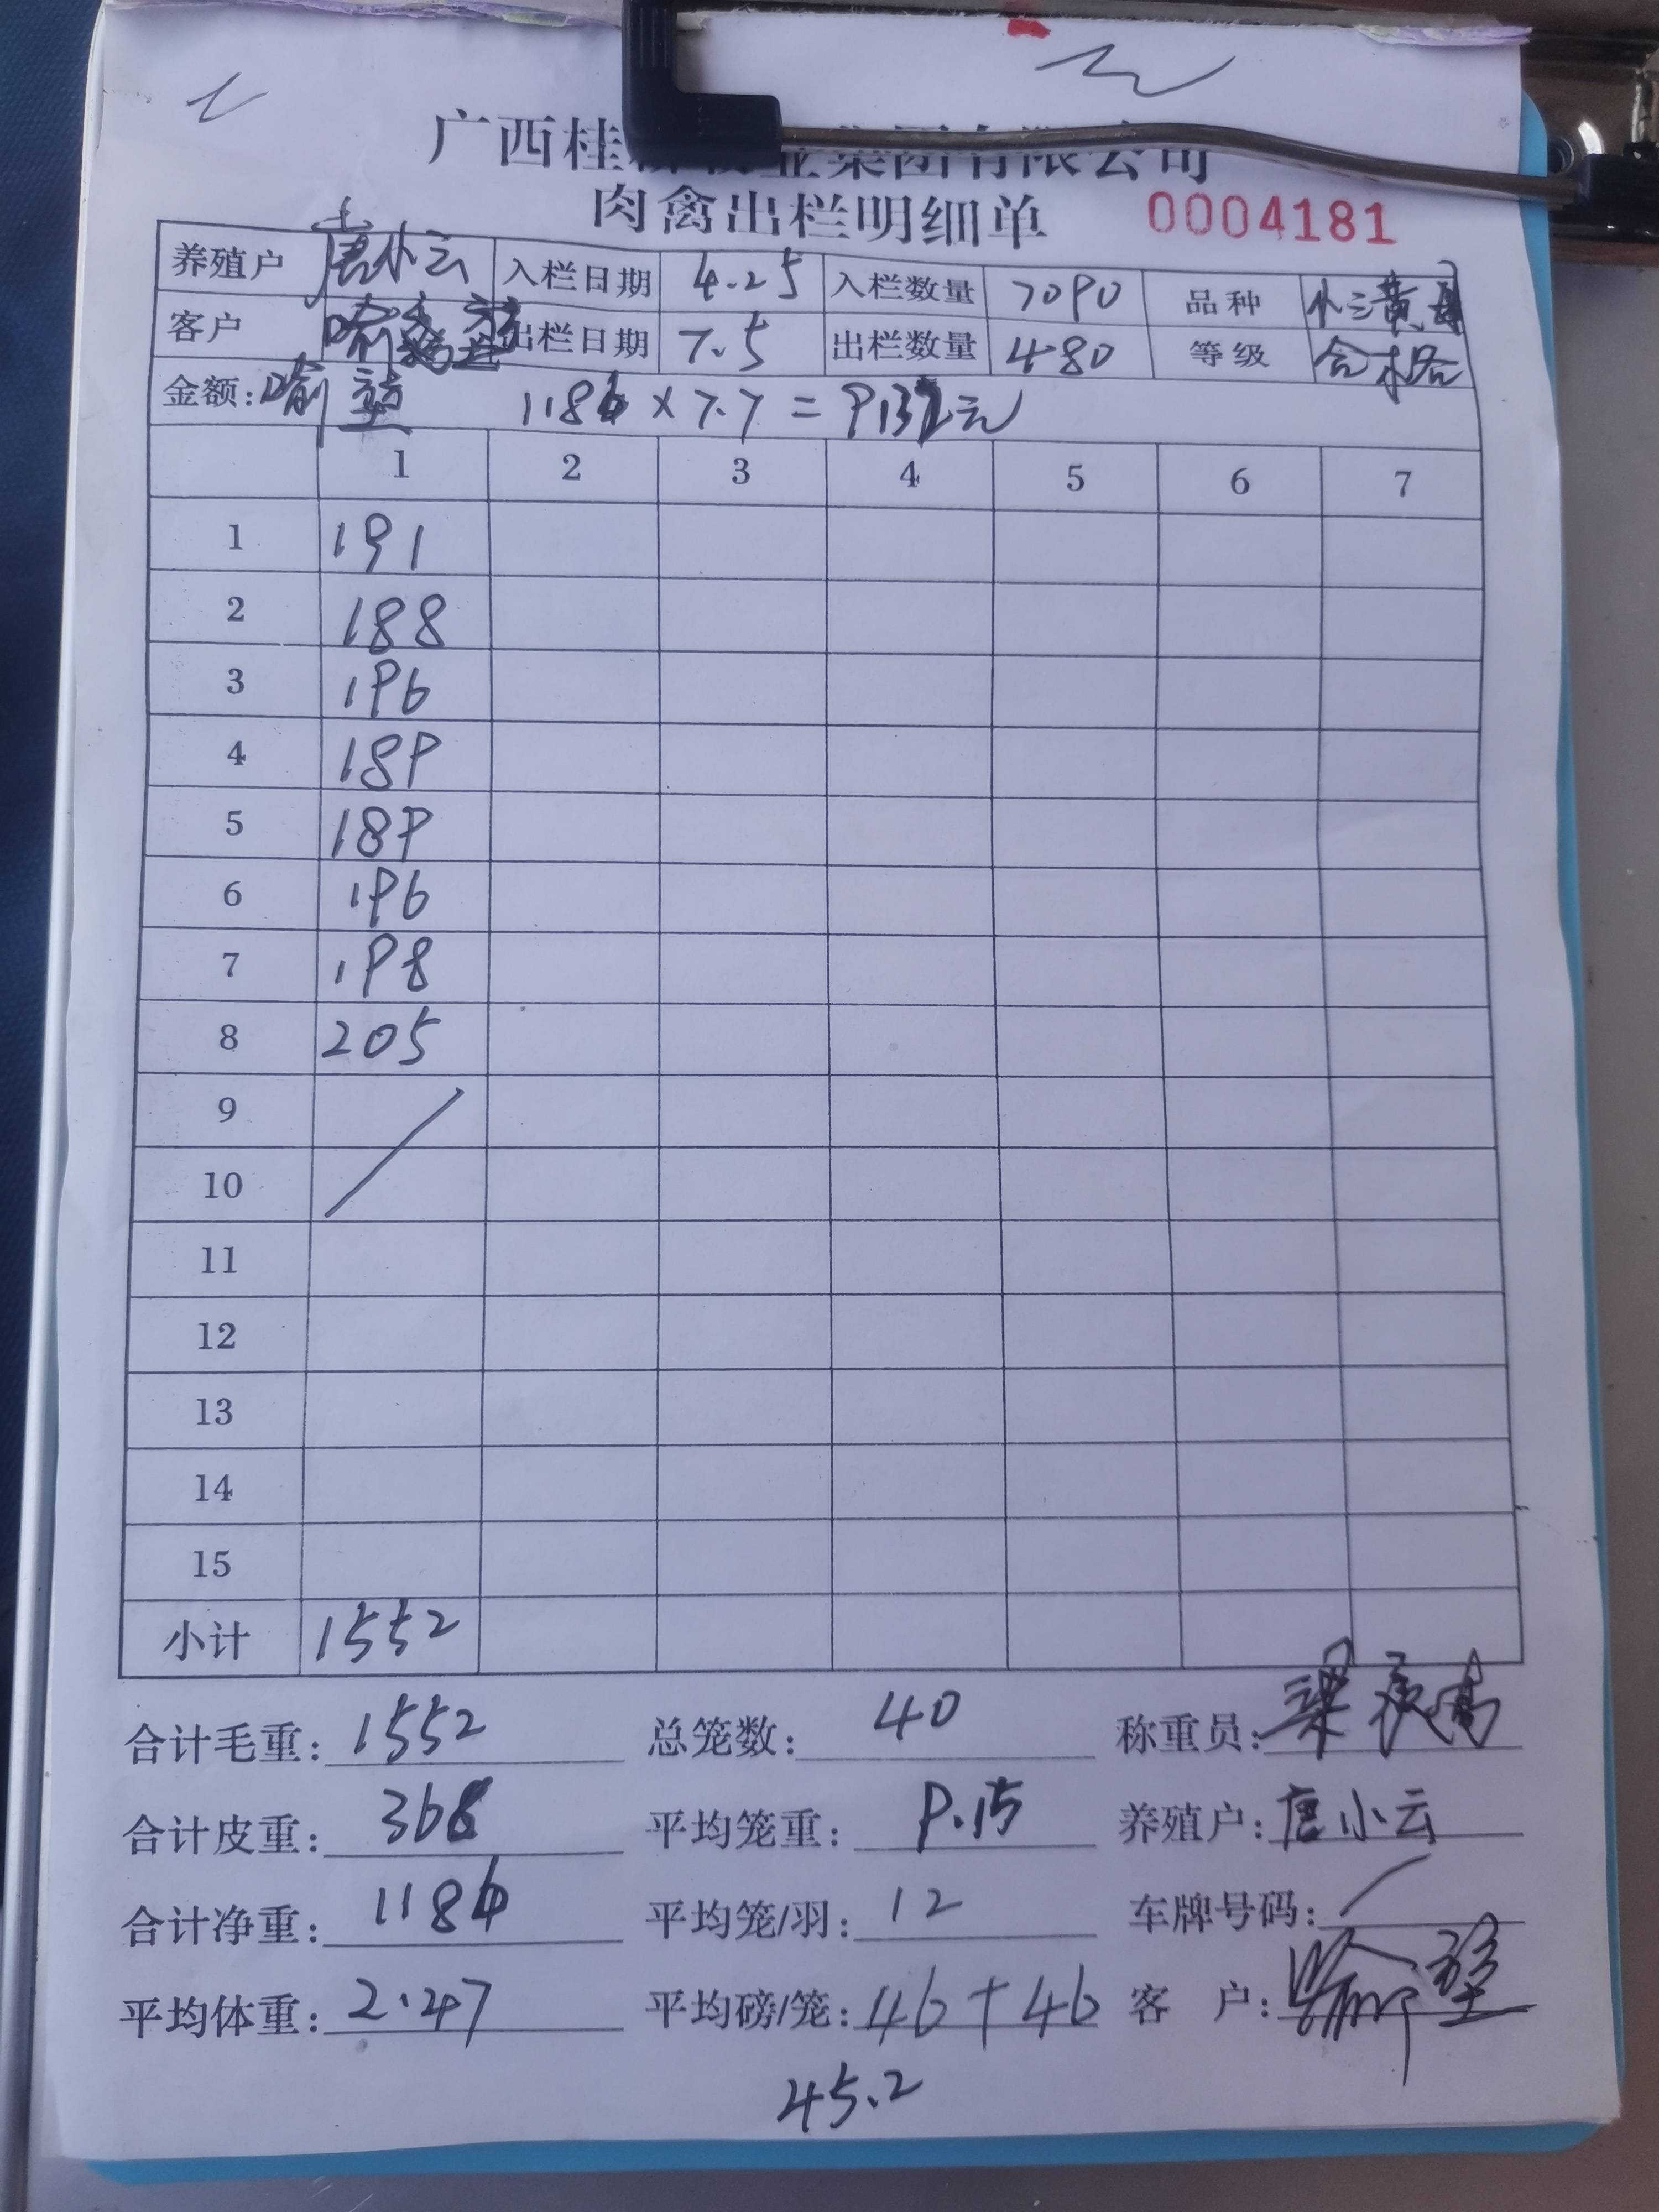 广西桂 业集团有限公司
肉禽出栏明细单 0004181
养殖户 唐小云 入栏日期 4.25 入栏数量 7090 品种 小三黄
客户 出栏日期 7.5 出栏数量 480 等级 合格
金额: 1186 × 7.7 = 9132元
1 2 3 4 5 6 7
1 191
2 188
3 196
4 189
5 189
6 196
7 198
8 205
9
10
11
12
13
14
15
小计 1552
合计毛重: 1552 总笼数: 40 称重员:
合计皮重: 366 平均笼重: 9.15 养殖户: 唐小云
合计净重: 1186 平均笼/羽: 12 车牌号码:
平均体重: 2.47 平均磅/笼: 46+46 客 户:
45.2